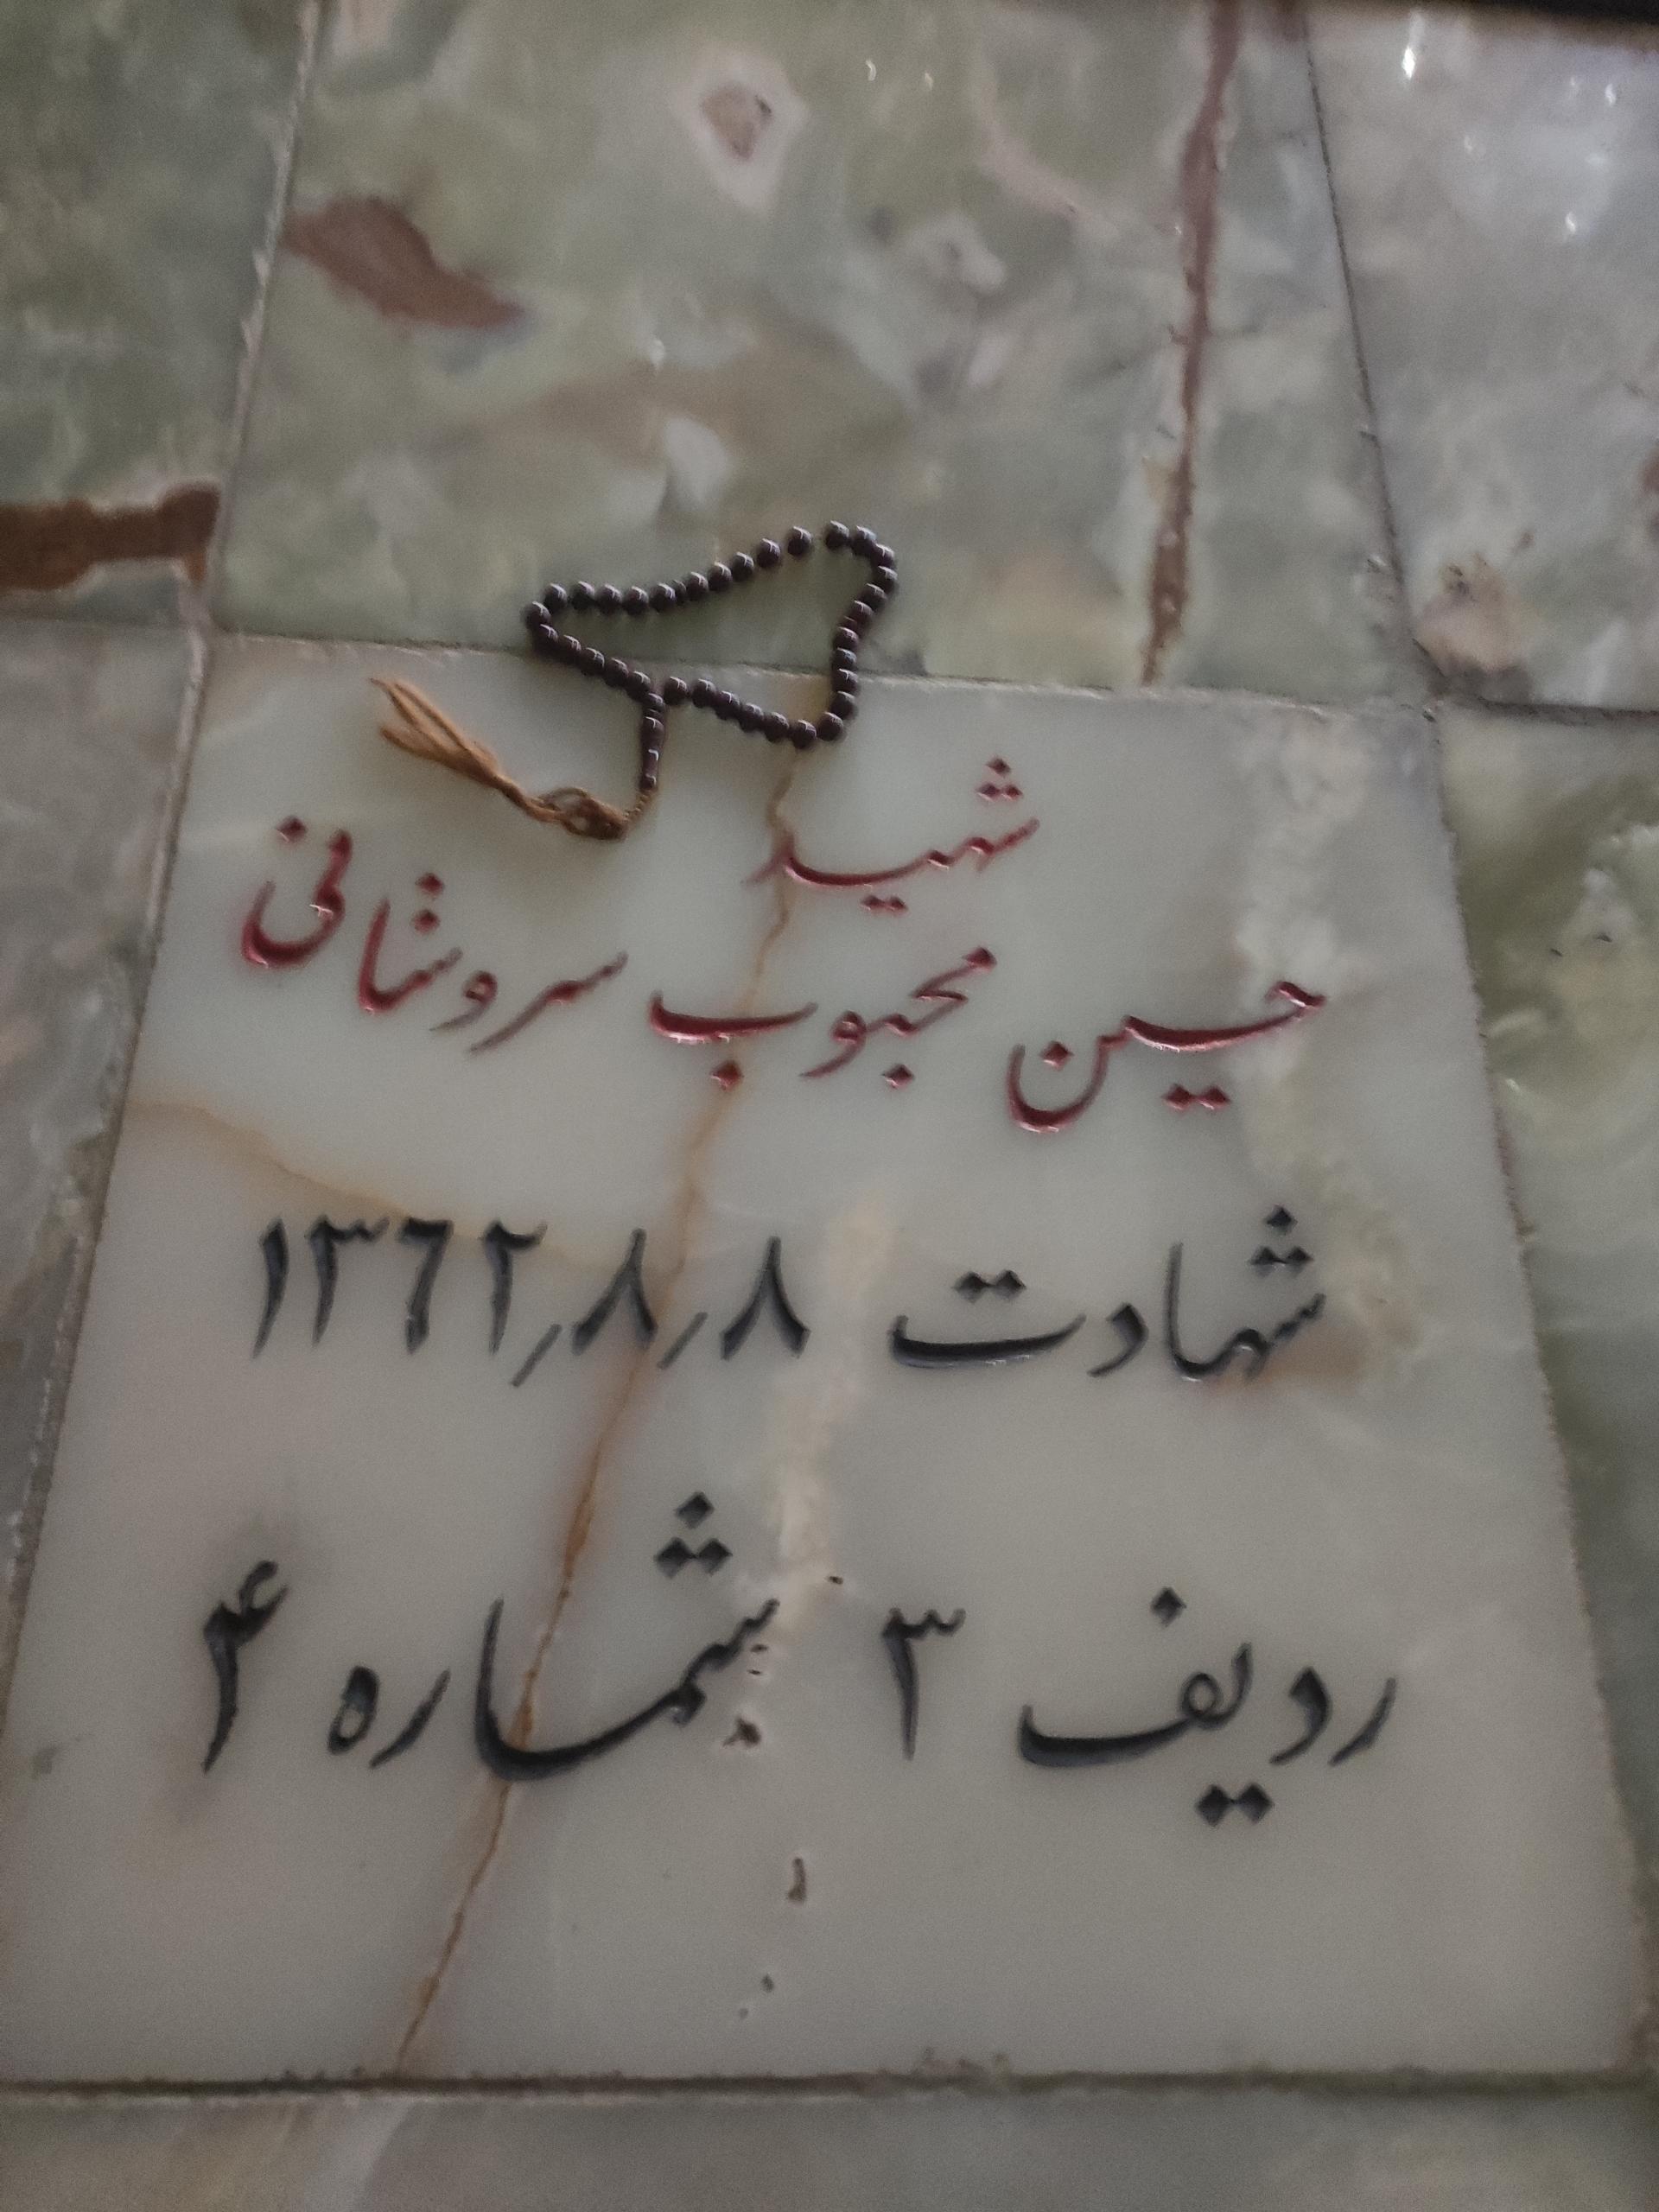 شهید
حسین محبوب سروشانی
شهادت ۱۳۶۲٫۸٫۸
ردیف ۳ شماره ۴